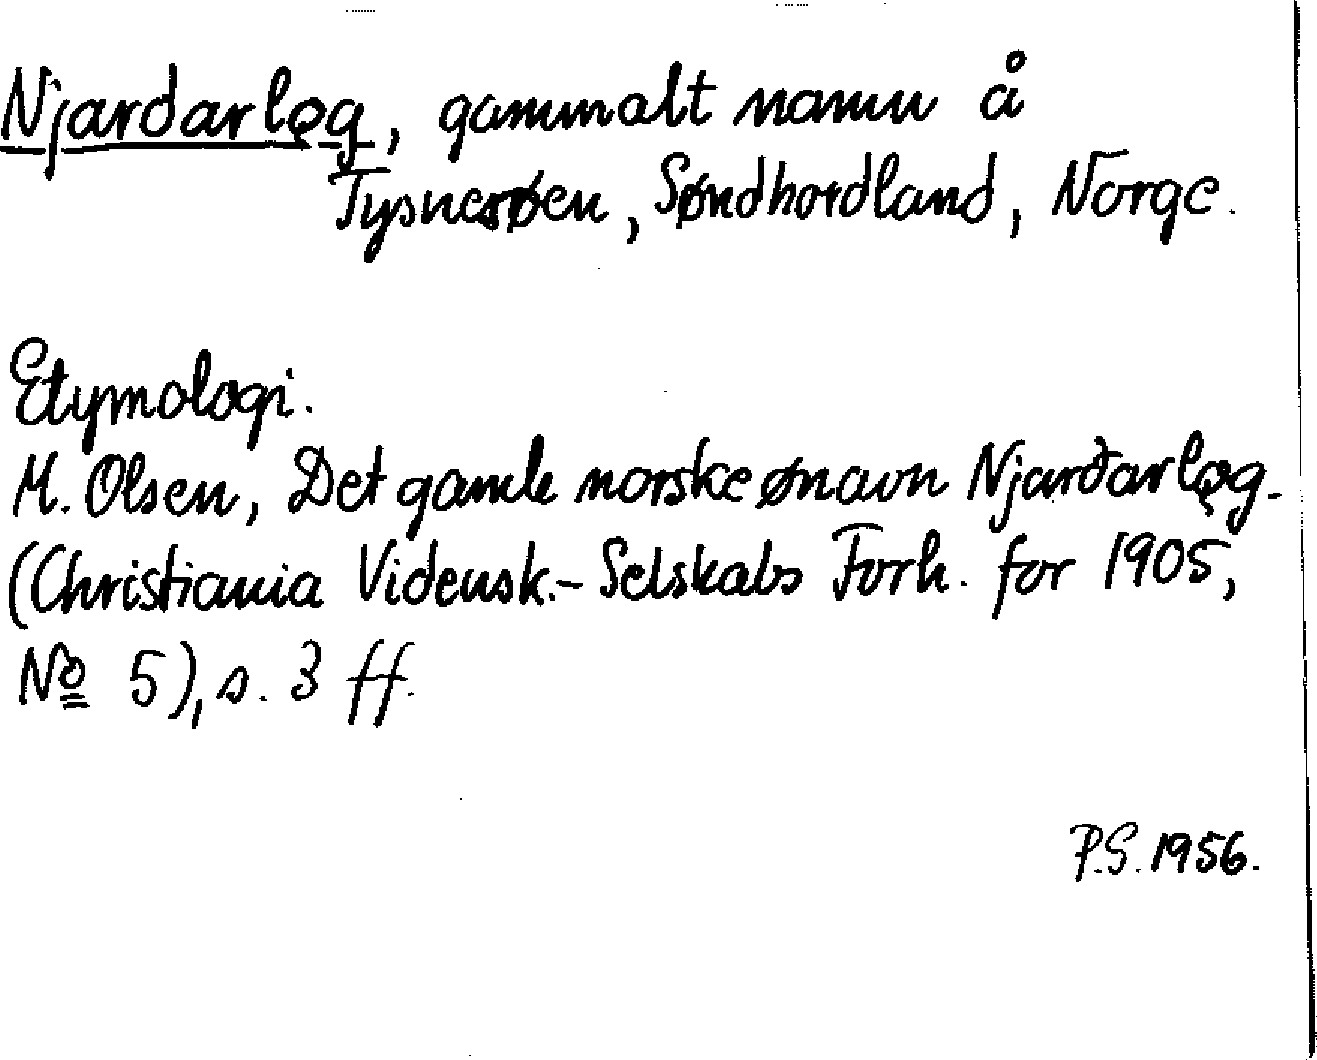 Njarðarlǫg, gammalt namn å
Tysnesøen, Søndhordland, Norge.
Etymologi.
M. Olsen, Det gamle norske ønavn Njarðarlǫg.
(Christiania Vidensk.-Selskabs Forh. for 1905,
Nº 5), s. 3 ff.
P.S. 1956.